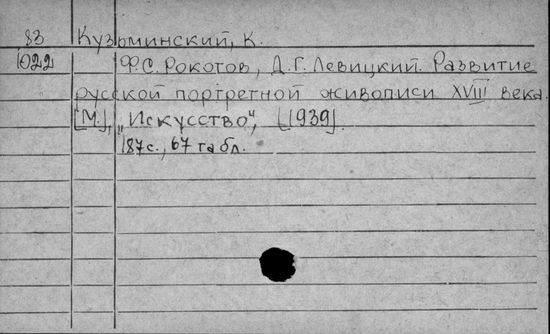 83 Кузьминский, К.
1022 Ф.С. Рокотов, Д.Г. Левицкий. Развитие
русской портретной живописи XVIII века.
[М.], "Искусство", [1939].
187 с., 67 табл.